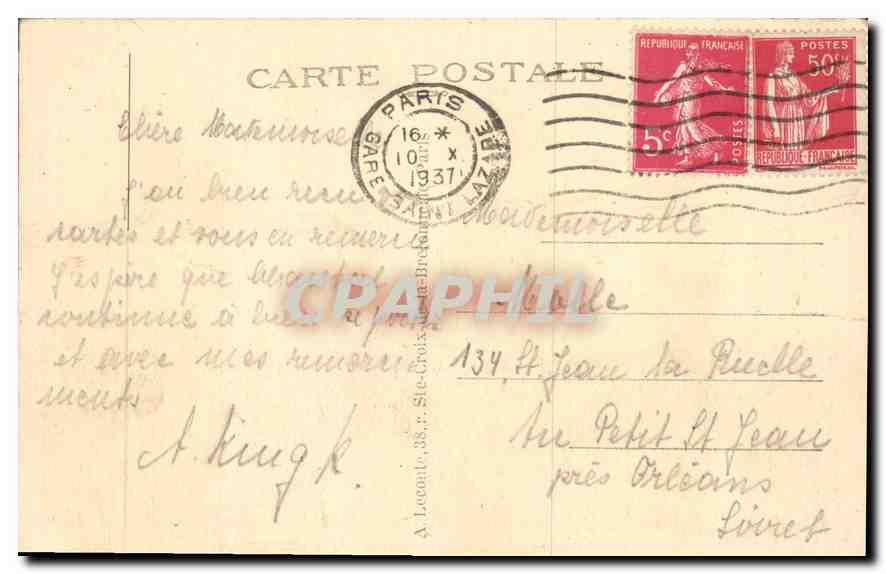 CARTE POSTALE
REPUBLIQUE FRANÇAISE
5c
POSTES
POSTES
50c
REPUBLIQUE FRANÇAISE
PARIS
GARE SAINT LAZARE
16 *
10 X
1937
J'ai bien reçu
cartes et vous en remerci
J'espère que
continue à bien
et avec mes remerci
ments
A. King
A. Leconte, 38, r. Ste-Croix-de-la-Bretonnerie, Paris
Mademoiselle
134, St. Jean la Ruelle
Au Petit St Jean
près Orléans
Loiret
CPAPHIL